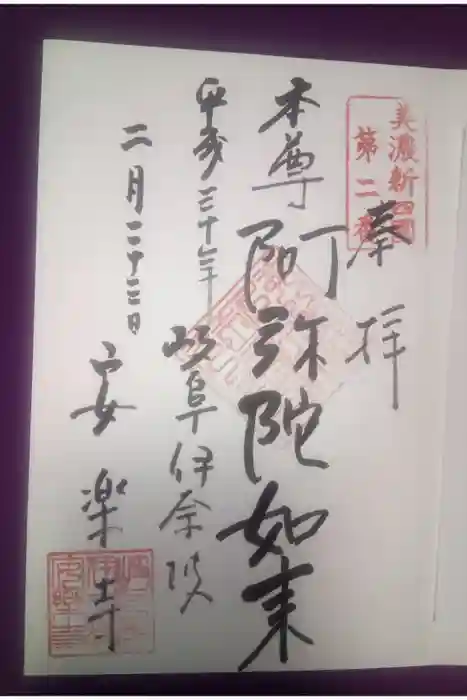 美濃新四国
第二番
奉拝
本尊 阿弥陀如来
平成三十年
岐阜伊奈波
二月二十三日
安楽寺